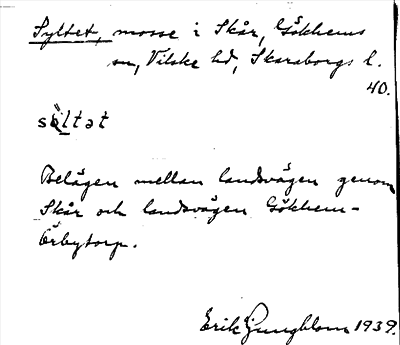 Syltet, mosse i Skår, Gökhems
sn, Vilske hd, Skaraborgs l.
40.
sỳltət
Belägen mellan landsvägen genom
Skår och landsvägen Gökhem-
Örbytorp.
Erik Ljungblom 1939.